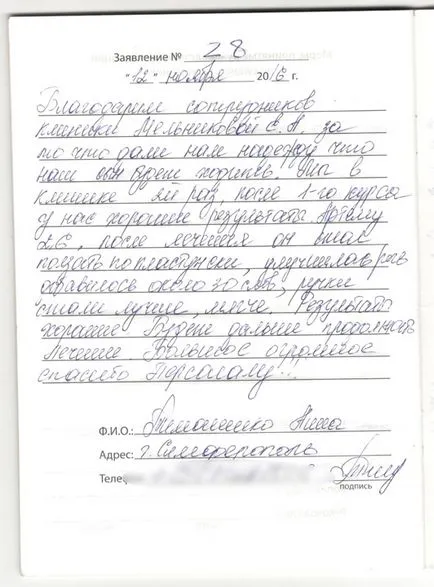 Заявление № 28
"12" ноября 2016 г.
Благодарим сотрудников
клиники Мельниковой Е. А. за
то что дали нам надежду что
наш сын будет ходить. Мы в
клинике 2й раз, после 1-го курса
у нас хорошие результаты Артёму
2.6, после лечения он стал
ползать по пластунски, улучшилась речь
добавилось около 30 слов, ручки
стали лучше, мягче. Результаты
хорошие Будем дальше продолжать
лечение. Большое огромное
спасибо Персоналу!!!
Ф.И.О.: Тимошенко Нина
Адрес: г. Симферополь
Теле
подпись